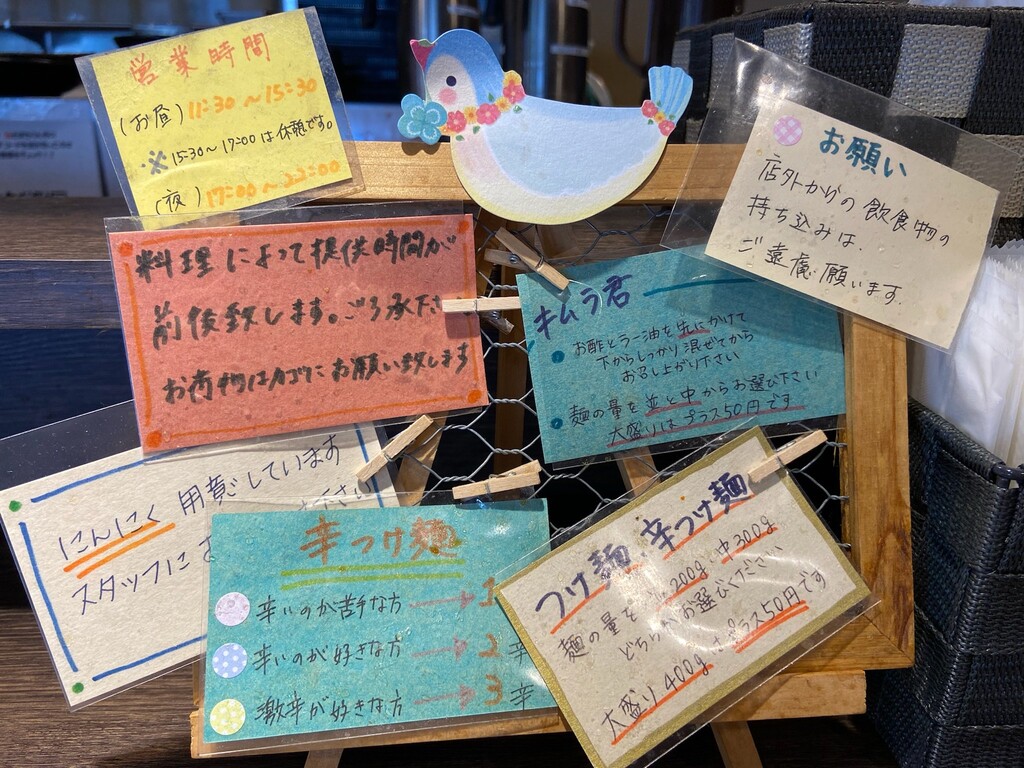 営業時間
(お昼) 11:30～15:30
※15:30～17:00は休憩です。
(夜) 17:00～22:00
お願い
店外からの飲食物の
持ち込みは、
ご遠慮願います。
料理によって提供時間が
前後致します。ごろ承下さ
お荷物はカゴにお願い致します
キムラ君
お酢とラー油を先にかけて
下からしっかり混ぜてから
お召し上がり下さい
麺の量を並と中からお選び下さい
大盛りはプラス50円です
にんにく用意しています
スタッフにお
辛つけ麺
辛いのが苦手な方→1
辛いのが好きな方→2辛
激辛が好きな方→3辛
つけ麺、辛つけ麺
麺の量を並200g、中300g
どちらかお選びください
大盛り400gはプラス50円です